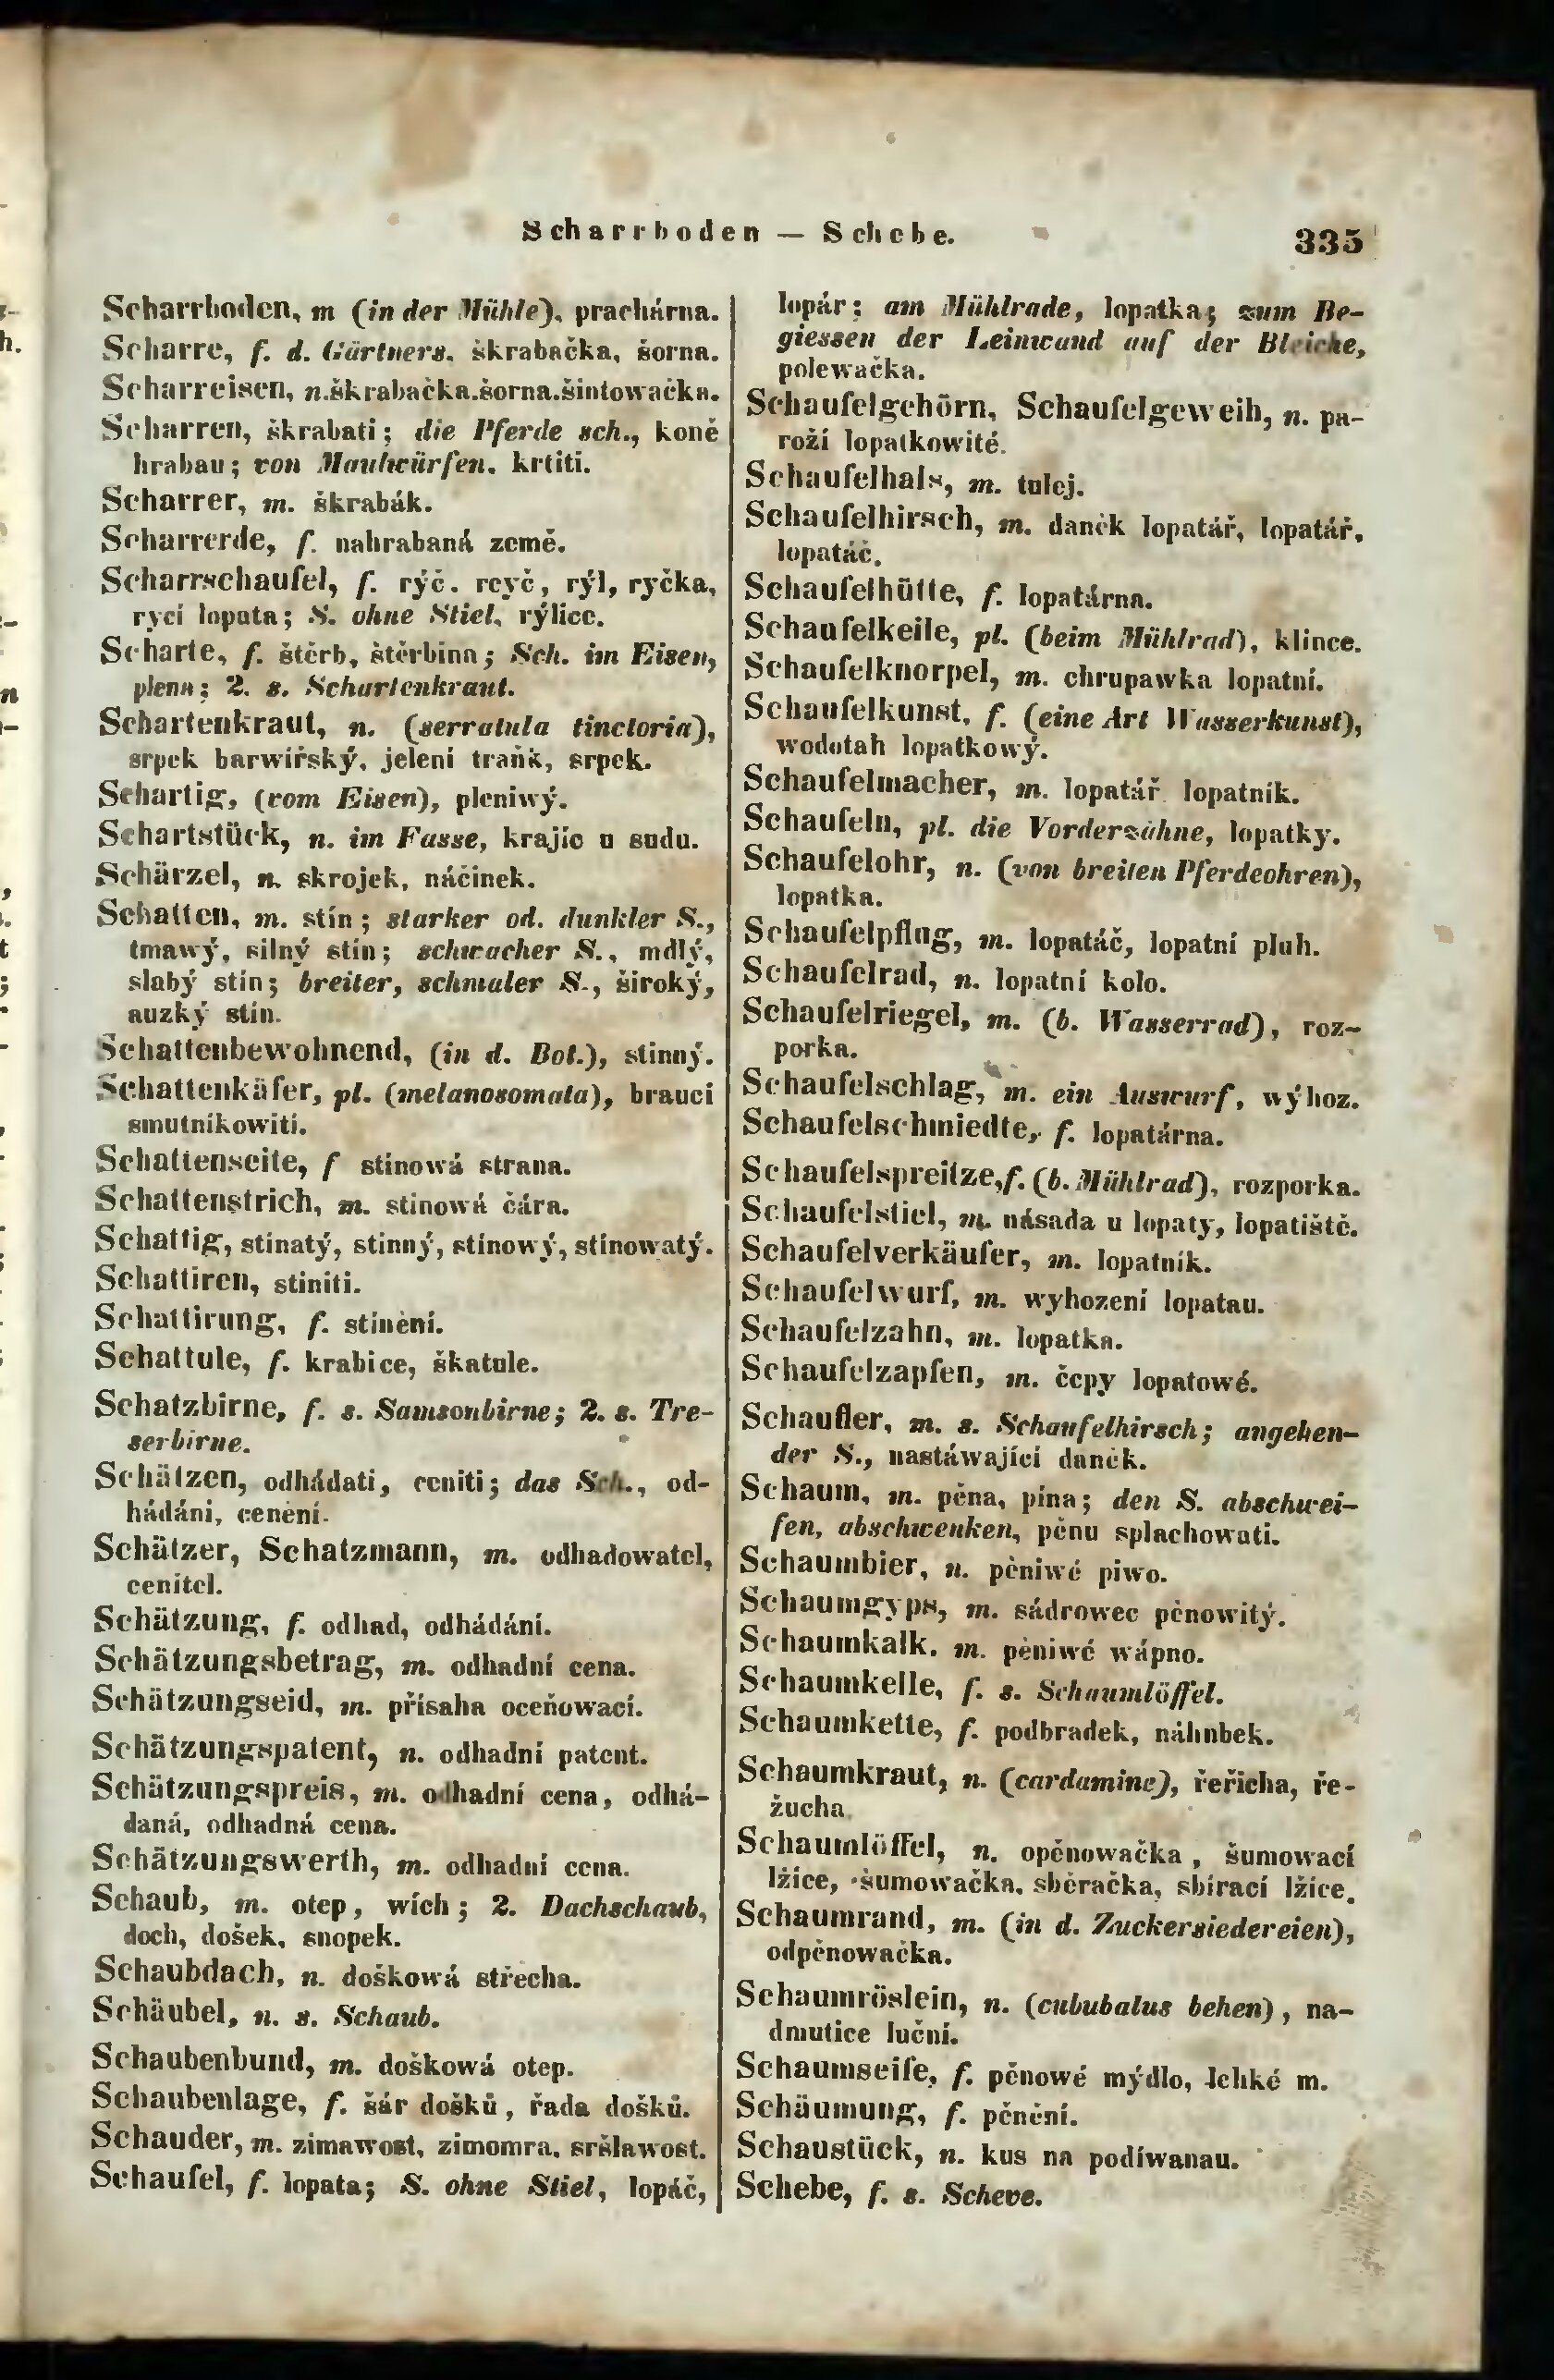 Scharrboden — Schebe.
335
Scharrboden, m (in der Mühle), prachárna.
Scharre, f. d. Gärtners, škrabačka, šorna.
Scharreisen, n.škrabačka.šorna.šintowačka.
Scharren, škrabati; die Pferde sch., koně
hrabau; von Maulwürfen, krtiti.
Scharrer, m. škrabák.
Scharrerde, f. nahrabaná země.
Scharrschaufel, f. rýč. reyč, rýl, ryčka,
rycí lopata; S. ohne Stiel, rýlice.
Scharte, f. štěrb, štěrbina; Sch. im Eisen,
plena; 2. s. Schartenkraut.
Schartenkraut, n. (serratula tinctoria),
srpek barwířský, jelení traňk, srpek.
Schartig, (vom Eisen), pleniwý.
Schartstück, n. im Fasse, krajíc u sudu.
Schärzel, n. skrojek, náčinek.
Schatten, m. stín; starker od. dunkler S.,
tmawý, silný stín; schwacher S., mdlý,
slabý stín; breiter, schmaler S., široký,
auzký stín.
Schattenbewohnend, (in d. Bot.), stinný.
Schattenkäfer, pl. (melanosomata), brauci
smutníkowití.
Schattenseite, f stínowá strana.
Schattenstrich, m. stinowá čára.
Schattig, stínatý, stinný, stínowý, stínowatý.
Schattiren, stiniti.
Schattirung, f. stínění.
Schattule, f. krabice, škatule.
Schatzbirne, f. s. Samsonbirne; 2. s. Tre-
serbirne.
Schätzen, odhádati, ceniti; das Sch., od-
hádání, cenění.
Schätzer, Schatzmann, m. odhadowatel,
cenitel.
Schätzung, f. odhad, odhádání.
Schätzungsbetrag, m. odhadní cena.
Schätzungseid, m. přísaha oceňowací.
Schätzungspatent, n. odhadní patent.
Schätzungspreis, m. odhadní cena, odhá-
daná, odhadná cena.
Schätzungswerth, m. odhadní cena.
Schaub, m. otep, wích; 2. Dachschaub,
doch, došek, snopek.
Schaubdach, n. došková střecha.
Schäubel, n. s. Schaub.
Schaubenbund, m. došková otep.
Schaubenlage, f. šár došků, řada došků.
Schauder, m. zimawost, zimomra, sršlawost.
Schaufel, f. lopata; S. ohne Stiel, lopáč,
lopár; am Mühlrade, lopatka; zum Be-
giessen der Leinwand auf der Bleiche,
polewačka.
Schaufelgehörn, Schaufelgeweih, n. pa-
roží lopatkowité.
Schaufelhals, m. tulej.
Schaufelhirsch, m. daněk lopatář, lopatář,
lopatáč.
Schaufelhütte, f. lopatárna.
Schaufelkeile, pl. (beim Mühlrad), klince.
Schaufelknorpel, m. chrupawka lopatní.
Schaufelkunst, f. (eine Art Wasserkunst),
wodotah lopatkowý.
Schaufelmacher, m. lopatář lopatník.
Schaufeln, pl. die Vorderzähne, lopatky.
Schaufelohr, n. (von breiten Pferdeohren),
lopatka.
Schaufelpflug, m. lopatáč, lopatní pluh.
Schaufelrad, n. lopatní kolo.
Schaufelriegel, m. (b. Wasserrad), roz-
porka.
Schaufelschlag, m. ein Auswurf, wýhoz.
Schaufelschmiedte, f. lopatárna.
Schaufelspreitze,f. (b. Mühlrad), rozporka.
Schaufelstiel, m. násada u lopaty, lopatiště.
Schaufelverkäufer, m. lopatník.
Schaufelwurf, m. wyhození lopatau.
Schaufelzahn, m. lopatka.
Schaufelzapfen, m. čepy lopatowé.
Schaufler, m. s. Schaufelhirsch; angehen-
der S., nastáwající daněk.
Schaum, m. pěna, pína; den S. abschwei-
fen, abschwenken, pěnu splachowati.
Schaumbier, n. pěniwé piwo.
Schaumgyps, m. sádrowec pěnowitý.
Schaumkalk, m. pěniwé wápno.
Schaumkelle, f. s. Schaumlöffel.
Schaumkette, f. podbradek, náhubek.
Schaumkraut, n. (cardamine), řeřicha, ře-
žucha
Schaumlöffel, n. opěnowačka, šumowací
lžíce, šumowačka, sběračka, sbírací lžíce.
Schaumrand, m. (in d. Zuckersiedereien),
odpěnowačka.
Schaumröslein, n. (cububalus behen), na-
dmutice luční.
Schaumseife, f. pěnowé mýdlo, lehké m.
Schäumung, f. pěnění.
Schaustück, n. kus na podíwanau.
Schebe, f. s. Scheve.